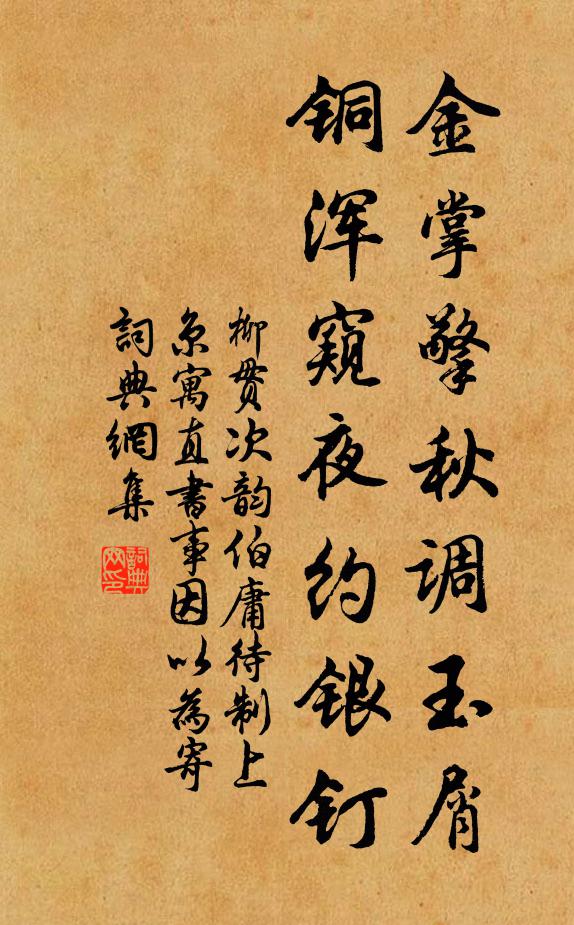 金掌擎秋调玉屑
铜浑窥夜约银钉
柳贯次韵伯庸待制上
京寓直书事因以为寄
詞典網集
詞典
網印